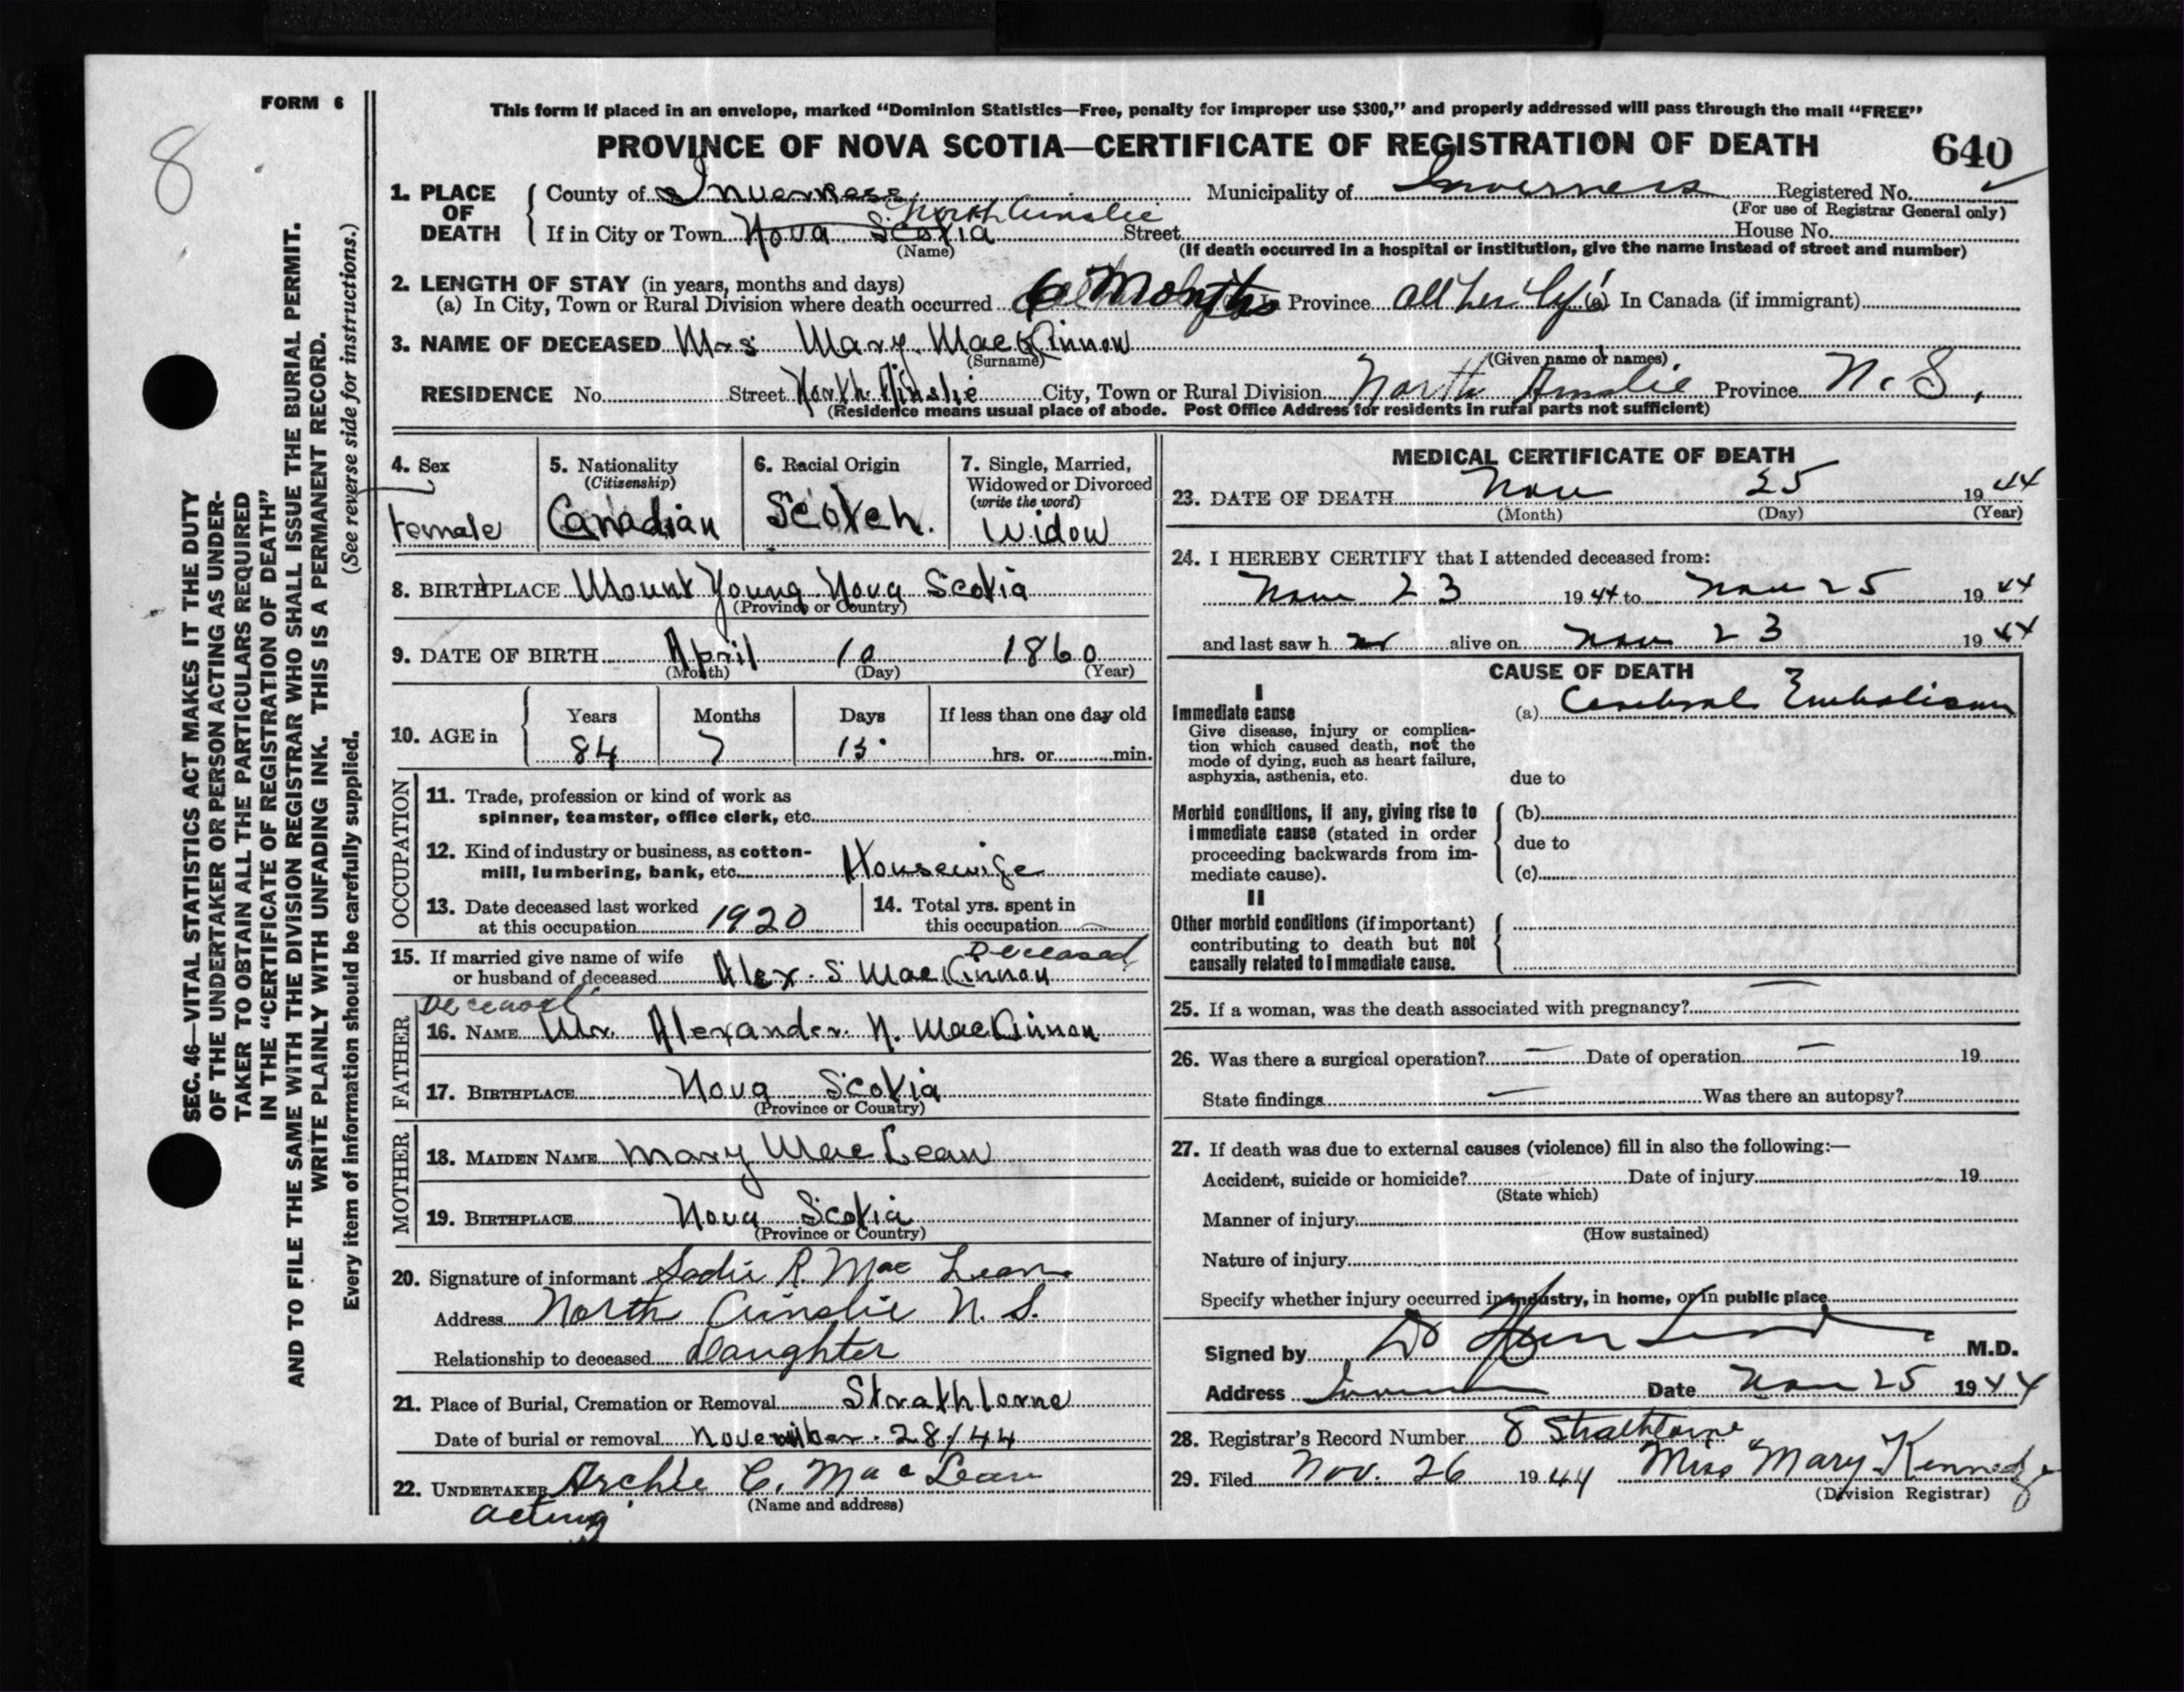 FORM 6
8
This form if placed in an envelope, marked “Dominion Statistics—Free, penalty for improper use $300,” and properly addressed will pass through the mail “FREE”
PROVINCE OF NOVA SCOTIA—CERTIFICATE OF REGISTRATION OF DEATH
640
1. PLACE OF DEATH
County of Inverness Municipality of Inverness Registered No.
(For use of Registrar General only)
North Ainslie
If in City or Town Nova Scotia Street House No.
(Name) (If death occurred in a hospital or institution, give the name instead of street and number)
2. LENGTH OF STAY (in years, months and days)
(a) In City, Town or Rural Division where death occurred 6 Months In Province all her In Canada (if immigrant)
3. NAME OF DECEASED Mrs Mary MacKinnon
(Surname) (Given name or names)
RESIDENCE No. Street North Ainslie City, Town or Rural Division North Ainslie Province N. S.
(Residence means usual place of abode. Post Office Address for residents in rural parts not sufficient)
4. Sex
female
5. Nationality
(Citizenship)
Canadian
6. Racial Origin
Scotch.
7. Single, Married,
Widowed or Divorced
(write the word)
Widow
8. BIRTHPLACE Mount Young Nova Scotia
(Province or Country)
9. DATE OF BIRTH April 10 1860
(Month) (Day) (Year)
10. AGE in
Years Months Days If less than one day old
84 7 15 hrs. or min.
OCCUPATION
11. Trade, profession or kind of work as
spinner, teamster, office clerk, etc.
12. Kind of industry or business, as cotton-
mill, lumbering, bank, etc. Housewife
13. Date deceased last worked
at this occupation 1920
14. Total yrs. spent in
this occupation
15. If married give name of wife Deceased
or husband of deceased Alex. S MacKinnon
Deceased
FATHER
16. NAME Mr. Alexander N. MacKinnon
17. BIRTHPLACE Nova Scotia
(Province or Country)
MOTHER
18. MAIDEN NAME Mary MacLean
19. BIRTHPLACE Nova Scotia
(Province or Country)
20. Signature of informant Sadie R. MacLean
Address North Ainslie N. S.
Relationship to deceased daughter
21. Place of Burial, Cremation or Removal Strathlorne
Date of burial or removal November 28/44
22. UNDERTAKER Archie C. MacLean
(Name and address)
acting
MEDICAL CERTIFICATE OF DEATH
23. DATE OF DEATH Nov 25 1944
(Month) (Day) (Year)
24. I HEREBY CERTIFY that I attended deceased from:
Nov 23 1944 to Nov 25 1944
and last saw her alive on Nov 23 1944
CAUSE OF DEATH
I
Immediate cause (a) Cerebral Embolism
Give disease, injury or complica-
tion which caused death, not the
mode of dying, such as heart failure,
asphyxia, asthenia, etc. due to
Morbid conditions, if any, giving rise to (b)
immediate cause (stated in order
proceeding backwards from im- due to
mediate cause). (c)
II
Other morbid conditions (if important)
contributing to death but not
causally related to immediate cause.
25. If a woman, was the death associated with pregnancy? —
26. Was there a surgical operation? — Date of operation — 19
State findings — Was there an autopsy?
27. If death was due to external causes (violence) fill in also the following:—
Accident, suicide or homicide? Date of injury 19
(State which)
Manner of injury
(How sustained)
Nature of injury
Specify whether injury occurred in industry, in home, or in public place
Signed by M.D.
Address Date Nov 25 1944
28. Registrar's Record Number 8 Strathlorne
29. Filed Nov. 26 1944 Miss Mary Kennedy
(Division Registrar)
SEC. 46—VITAL STATISTICS ACT MAKES IT THE DUTY
OF THE UNDERTAKER OR PERSON ACTING AS UNDER-
TAKER TO OBTAIN ALL THE PARTICULARS REQUIRED
IN THE “CERTIFICATE OF REGISTRATION OF DEATH”
AND TO FILE THE SAME WITH THE DIVISION REGISTRAR WHO SHALL ISSUE THE BURIAL PERMIT.
WRITE PLAINLY WITH UNFADING INK. THIS IS A PERMANENT RECORD.
Every item of information should be carefully supplied. (See reverse side for instructions.)